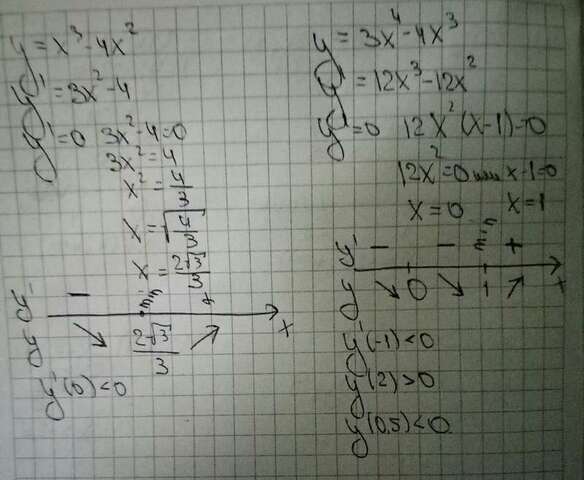 y = x³ - 4x²
y' = 3x² - 4
y' = 0 3x² - 4 = 0
3x² = 4
x² = 4/3
x = √(4/3)
x = 2√3/3
y' - min +
y ↘ 2√3/3 ↗ x
y'(0) < 0
y = 3x⁴ - 4x³
y' = 12x³ - 12x²
y' = 0 12x²(x-1) = 0
12x² = 0 или x-1 = 0
x = 0 x = 1
y' - - min +
y ↘ 0 ↘ 1 ↗ x
y'(-1) < 0
y'(2) > 0
y'(0,5) < 0